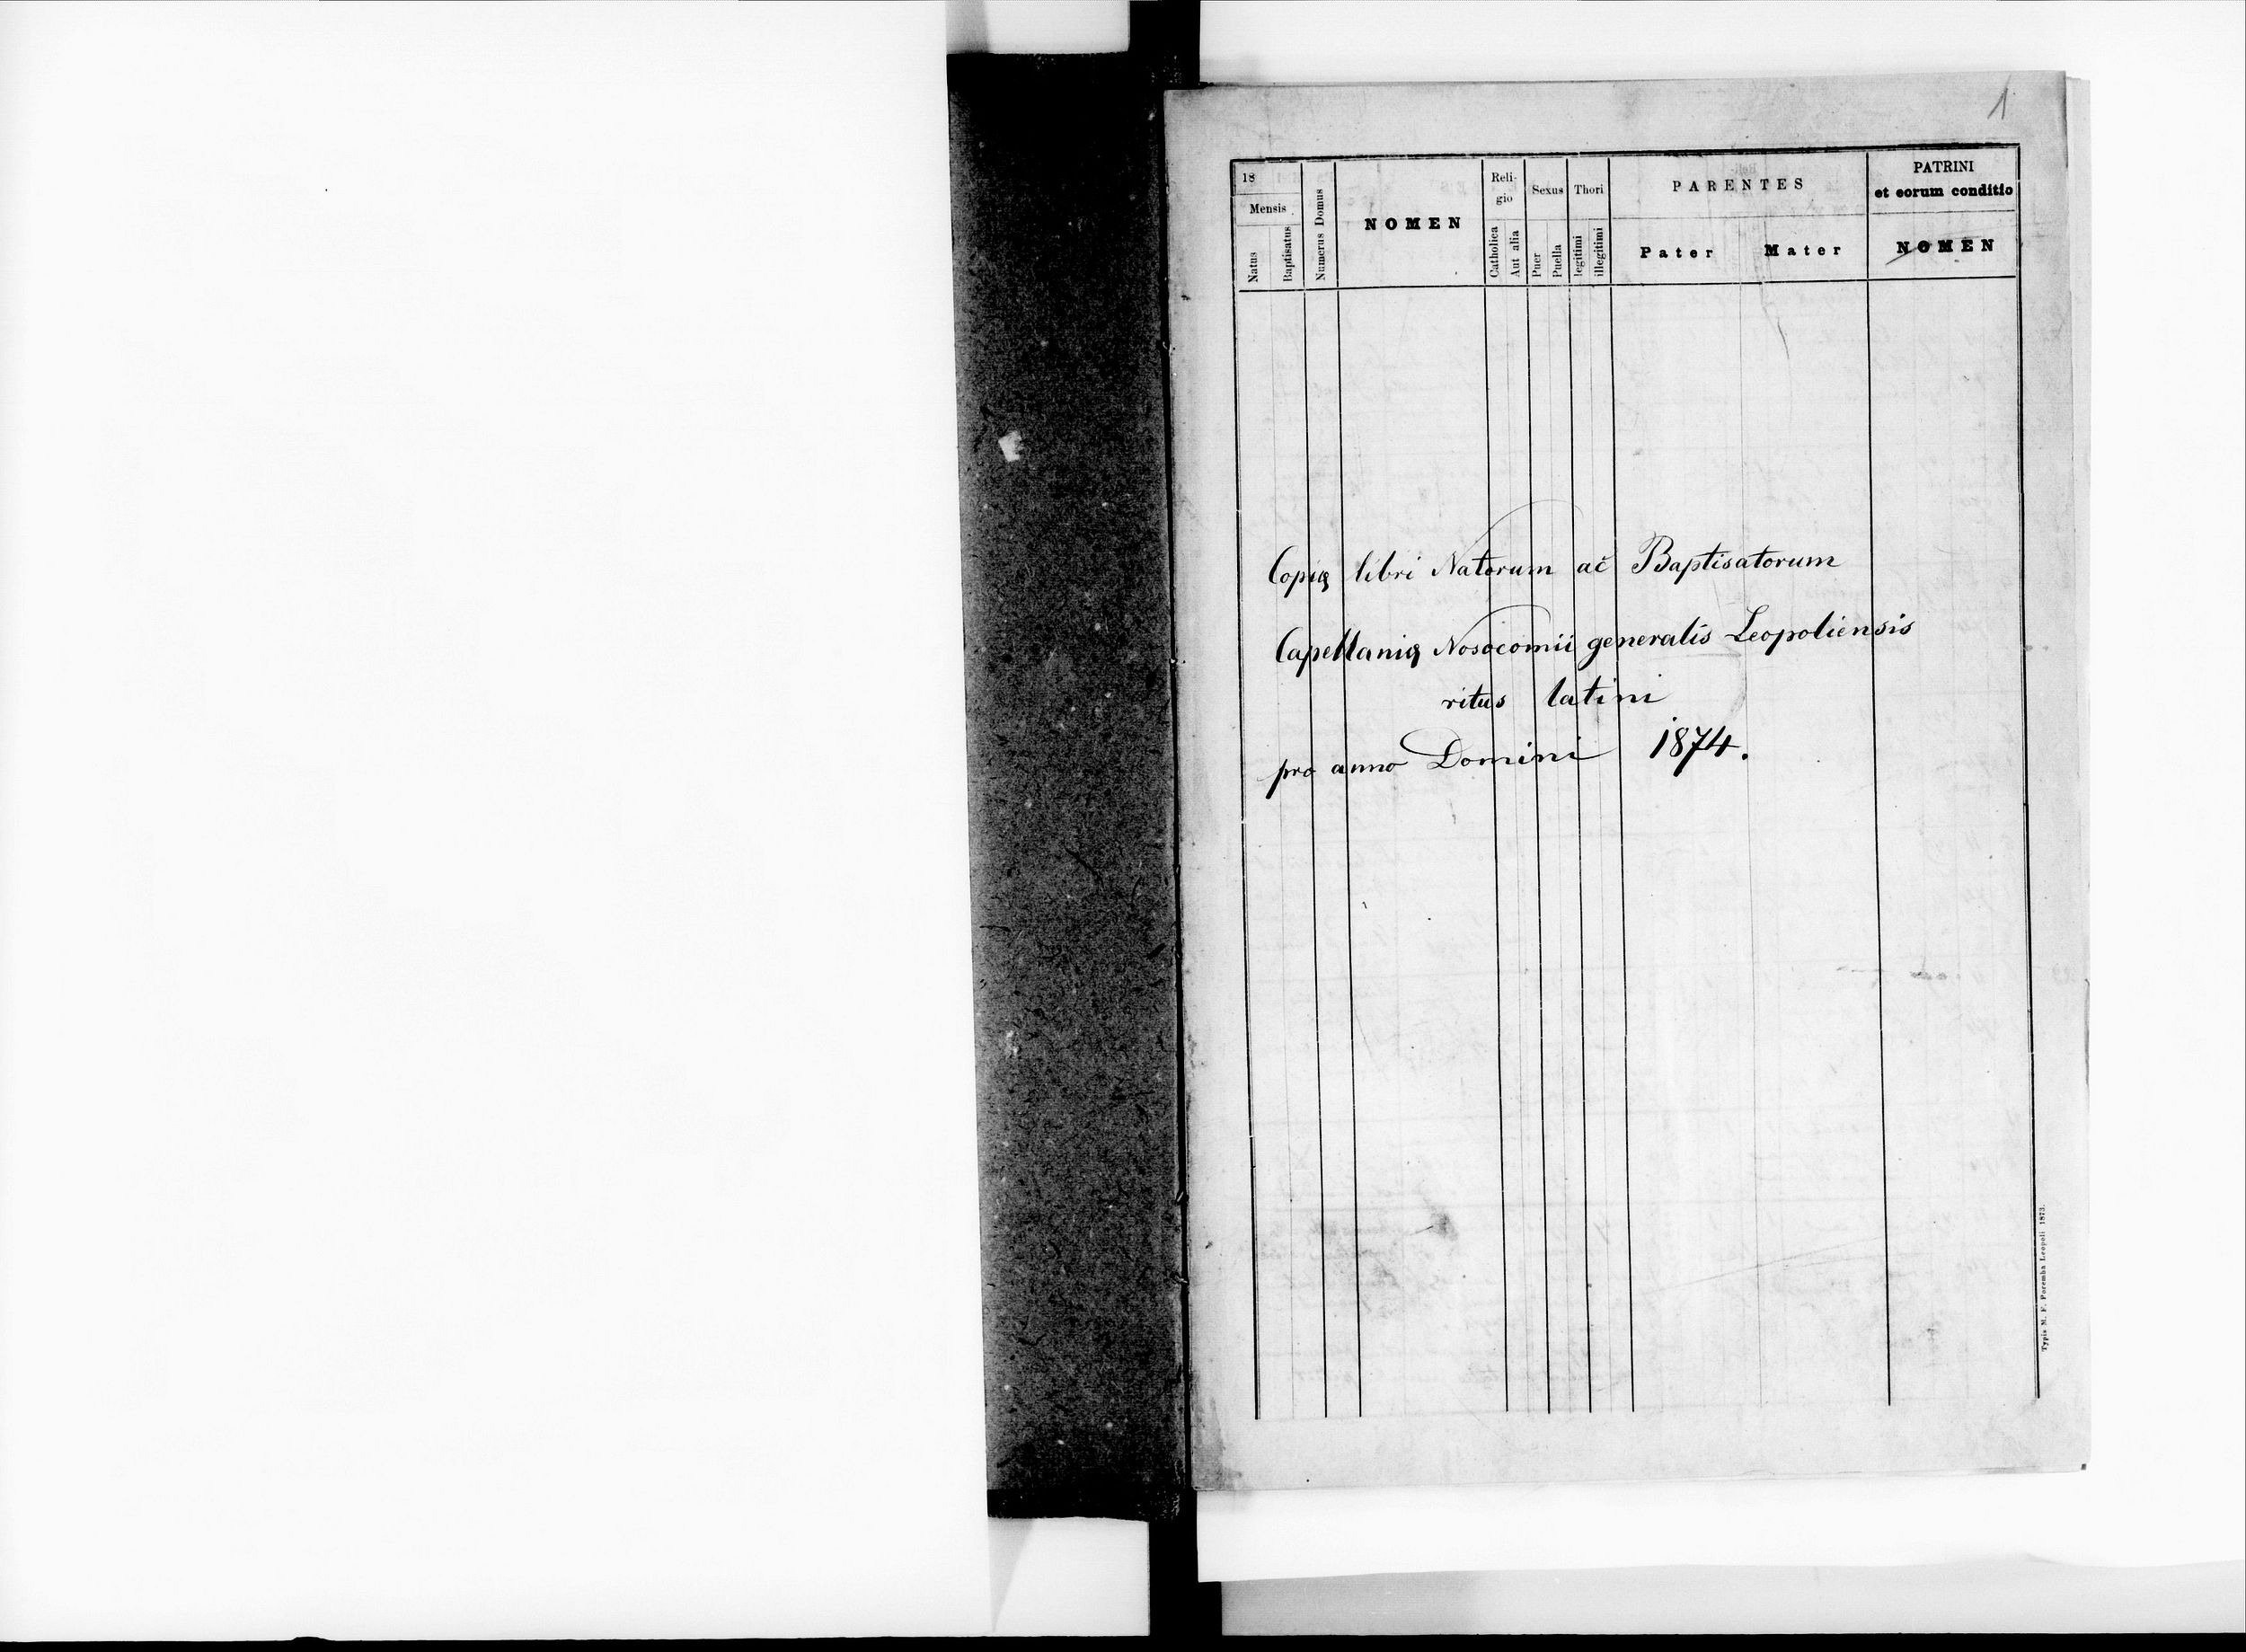 1
18
Mensis
Natus
Baptisatus
Numerus Domus
NOMEN
Reli-
gio
Catholica
Aut alia
Sexus
Puer
Puella
Thori
legitimi
illegitimi
PARENTES
Pater Mater
PATRINI
et eorum conditio
NOMEN
Copię libri Natorum ač Baptisatorum
Capellanię Nosocomii generalis Leopoliensis
ritus latini
pro anno Domini 1874.
Typis M. F. Poremba Leopoli 1873.